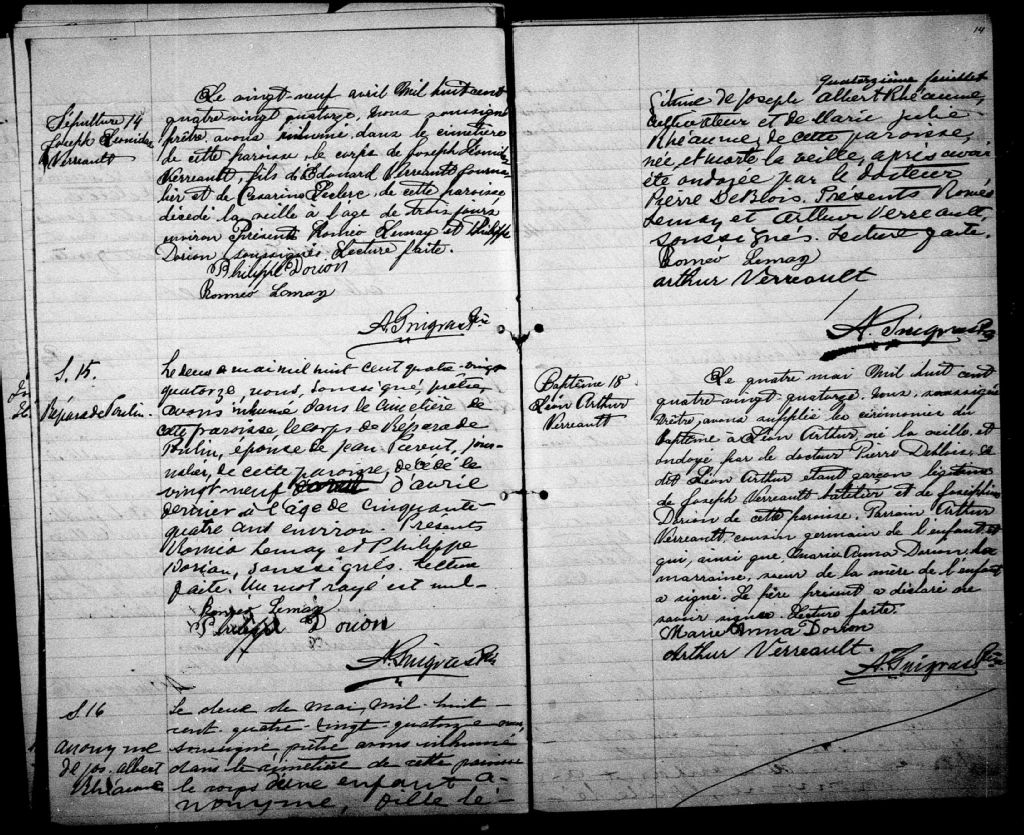 Sépulture 14
Joseph Léonidas
Verreault
Le vingt-neuf avril mil huit cent
quatre vingt quatorze, nous soussigné
prêtre, avons inhumé, dans le cimetière
de cette paroisse, le corps de Joseph Léonidas
Verreault, fils d'Edouard Verreault journa-
lier et de Cesarine Leclerc, de cette paroisse
décédé la veille à l'age de trois jours
environ Présents Roméo Lemay et Philippe
Dorion soussignés. Lecture faite.
Philippe Dorion
Romeo Lemay
A. Gingras Ptre
S. 15.
Répara de Poulin.
Le deux mai mil huit cent quatre-vingt
quatorze, nous, soussigné, prêtre,
avons inhumé dans le cimetière de
cette paroisse le corps de Repara de
Poulin, épouse de Jean Parent, jour-
nalier, de cette paroisse, décédé le
vingt-neuf d'avril
dernier à l'âge de cinquante-
quatre ans environ. Présents
Roméo Lemay et Philippe
Dorion, soussignés. Lecture
faite. Un mot rayé est nul-
Romeo Lemay
Philippe Dorion
A. Gingras Ptre
S. 16
anonyme
de Jos. Albert
Rhéaume
Le deux de mai, mil huit
cent quatre-vingt-quatorze nous,
soussigné, prêtre avons inhumé
dans le cimetière de cette paroisse
le corps d'une enfant a-
nonyme, fille lé-
14
quatorzième feuillet
gitime de Joseph Albert Rhéaume,
cultivateur et de Marie Julie
Rhéaume, de cette paroisse,
née et morte la veille, après avoir
été ondoyée par le docteur
Pierre DeBlois. Présents Roméo
Lemay et Arthur Verreault,
soussignés. Lecture faite.
Roméo Lemay
arthur Verreault
A. Gingras Ptre
Baptême 18
Léon Arthur
Verreault
Le quatre mai mil huit cent
quatre vingt-quatorze. Nous, soussigné
Prêtre, avons suppléé les cérémonies du
Baptême à Léon Arthur, né la veille, et
ondoyé par le docteur Pierre Deblois, le
dit Léon Arthur étant garçon légitime
de Joseph Verreault batelier et de Joséphine
Dorion de cette paroisse. Parrain Arthur
Verreault, cousin germain de l'enfant, et
qui, ainsi que Marie Anna Dorion, la
marraine, sœur de la mère de l'enfant
a signé. Le père présent a déclaré ne
savoir signer. Lecture faite.
Marie Anna Dorion
Arthur Verreault.
A. Gingras Ptre